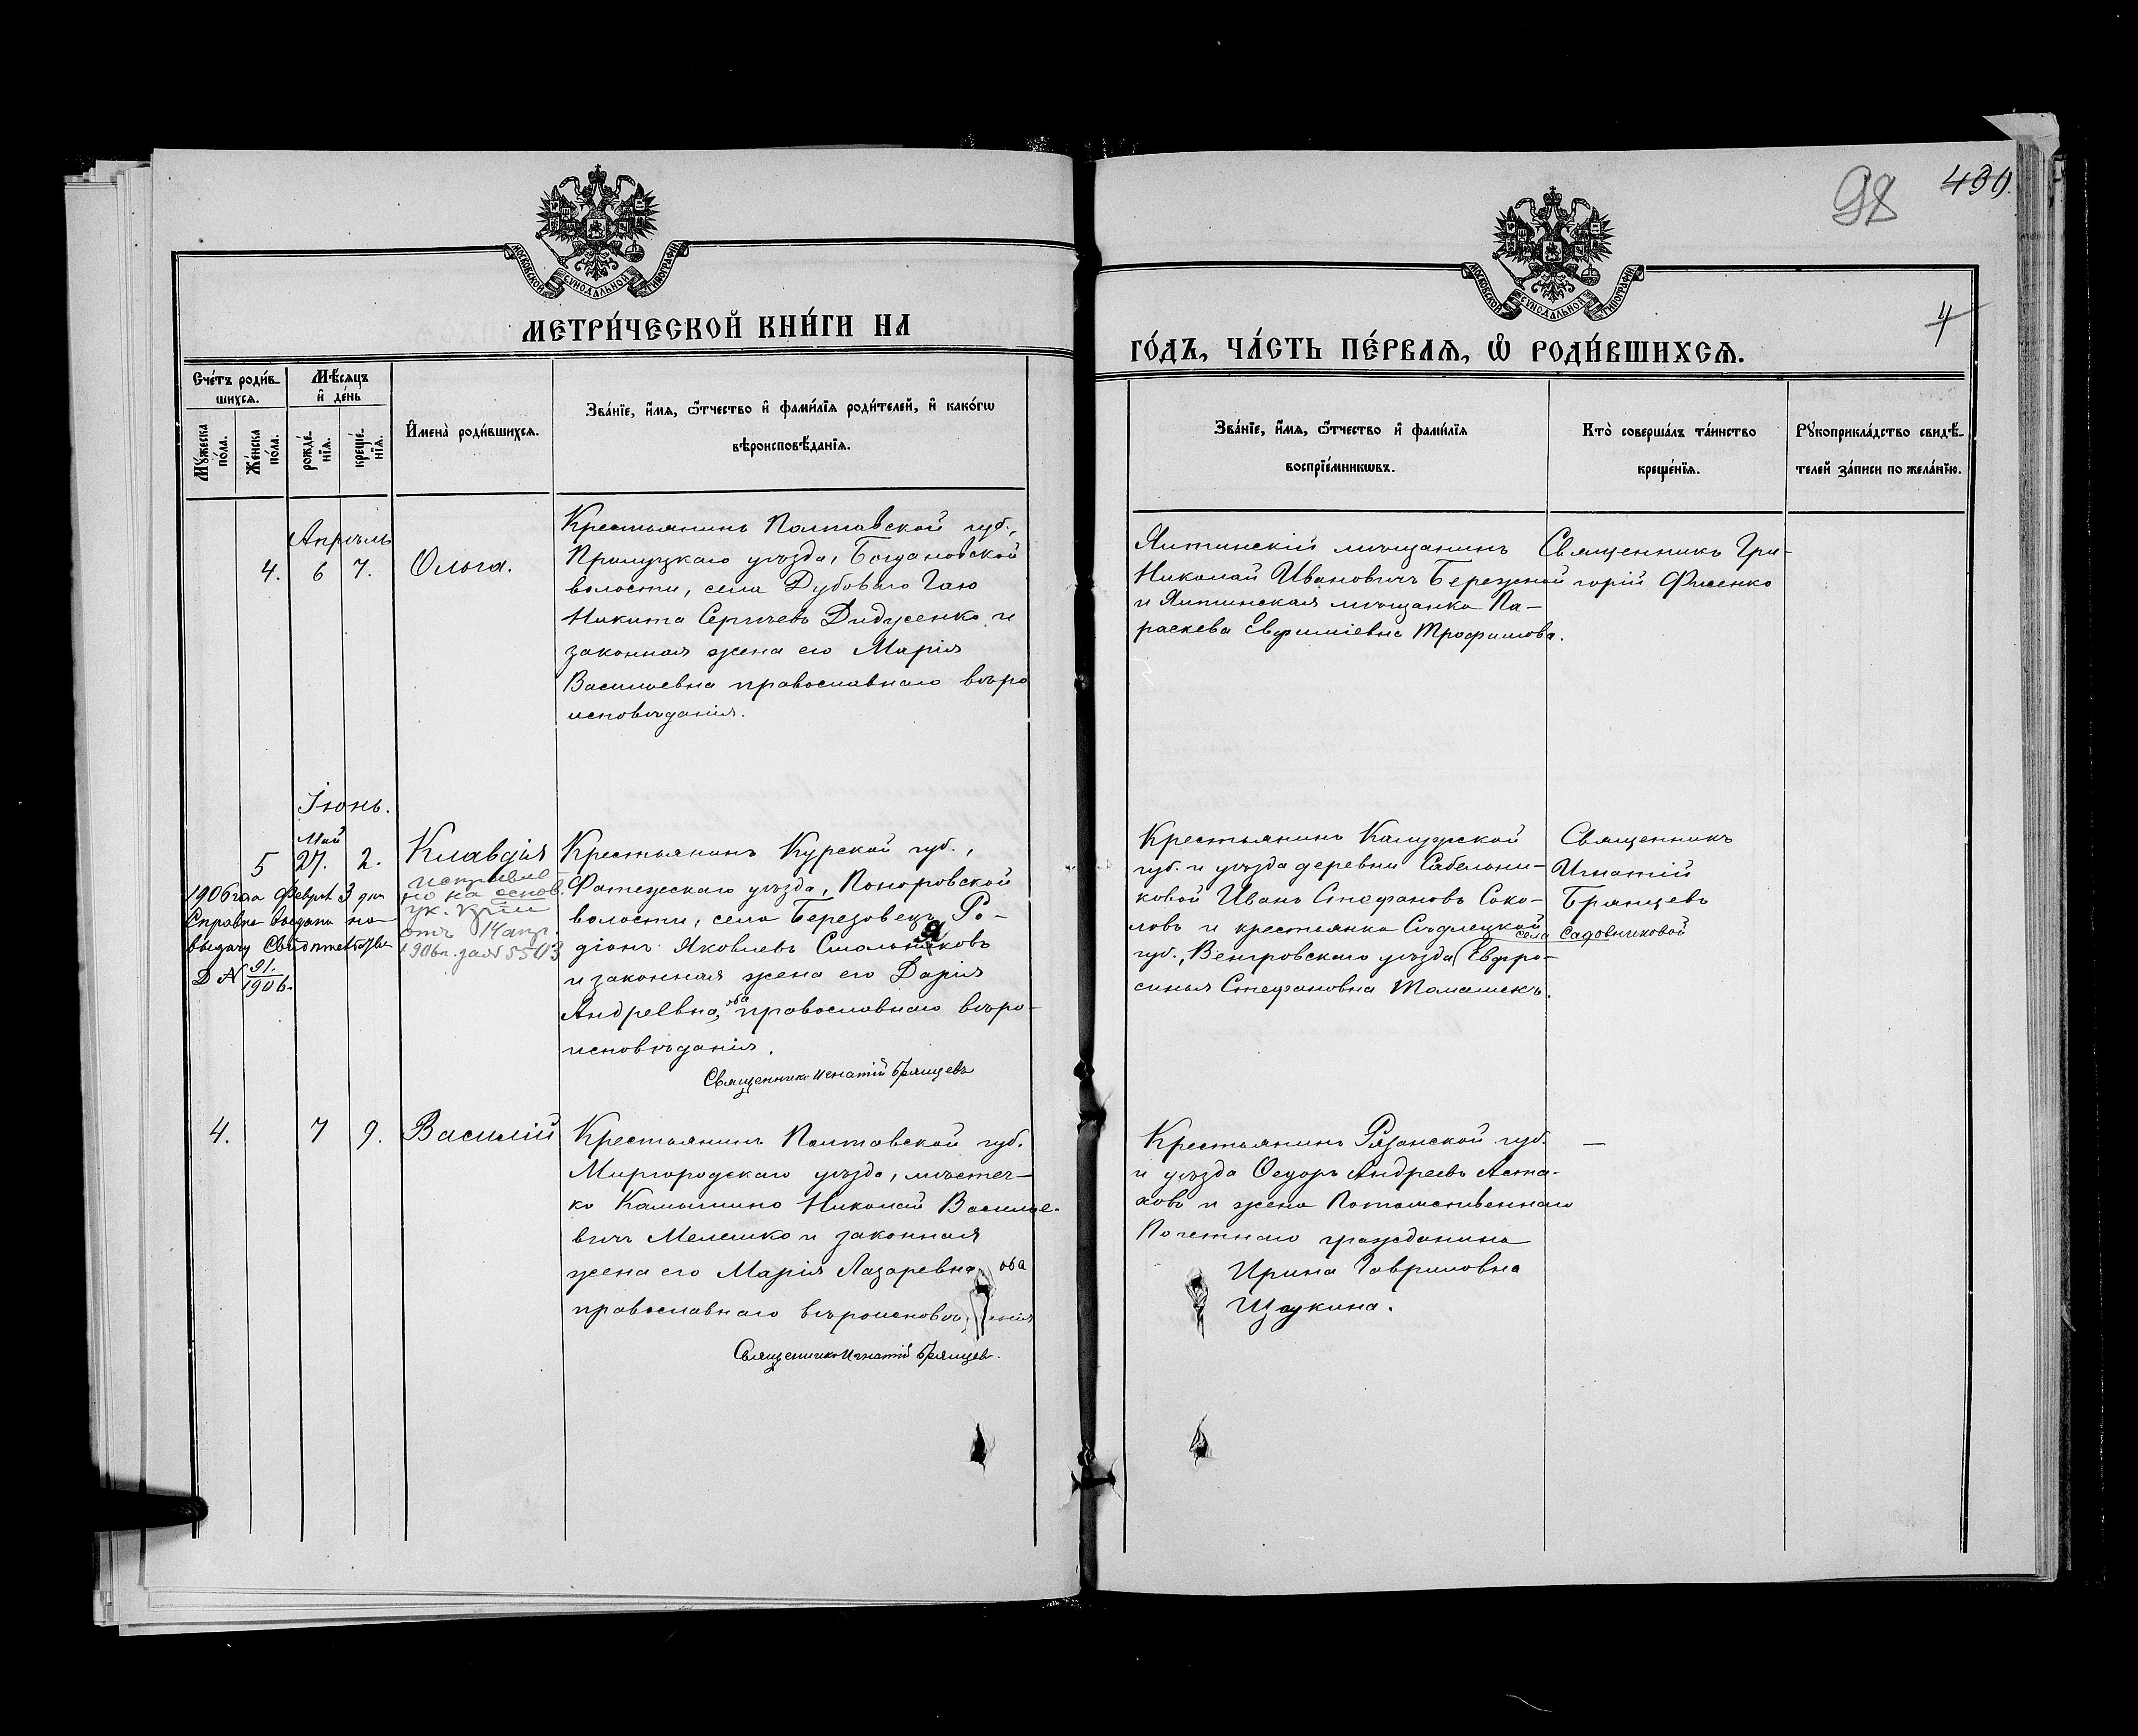 98
430.
МОСКОВСКОЙ СѴНОДАЛЬНОЙ ТИПОГРАФІИ
МОСКОВСКОЙ СѴНОДАЛЬНОЙ ТИПОГРАФІИ
4
МЕТРИ́ЧЕСКОЙ КНИ́ГИ НА
ГО́ДЪ, ЧА́СТЬ ПЕ́РВАѦ, Ѡ҆ РОДИ́ВШИХСѦ.
Сче́тъ роди́в-
шихсѧ.
Мѣ́сѧцъ
и҆ де́нь
Мꙋ́жеска
по́ла.
Же́нска
по́ла.
рожде́-
нїѧ.
креще́-
нїѧ.
И҆мена̀ роди́вшихсѧ.
Зва́нїе, и҆́мѧ, ѻ҆́тчество и҆ фами́лїѧ роди́телей, и҆ како́гѡ
вѣроисповѣ́данїѧ.
Зва́нїе, и҆́мѧ, ѻ҆́тчество и҆ фами́лїѧ
воспрїе́мникѡвъ.
Кто̀ соверша́лъ та́инство
креще́нїѧ.
Рꙋкоприкла́дство свидѣ́-
телей за́писи по жела́нїю.
Апрѣль
4. 6 7. Ольга.
Крестьянинъ Полтавской губ.,
Прилуцкаго уѣзда, Богдановской
волости, села Дубоваго Гаю
Никита Сергѣевъ Дидусенко и
законная жена его Марія
Васильевна православнаго вѣро
исповѣданія.
Ялтинскій мѣщанинъ
Николай Ивановичъ Бережной
и Ялтинская мѣщанка Па-
раскева Евфиміевна Трофимова.
Священникъ Гри-
горій Фисенко
Іюнь.
Май
5 27. 2. Клавдія
исправле
но на основ.
ук.
отъ 14 апр.
1906 г. за № 5503
1906 года Февр. 3 дня
Справка выдана на
выдачу Свидѣтельства
Д № 91.
1906.
Крестьянинъ Курской губ.,
Фатежскаго уѣзда, Поныровской
волости, села Березовецъ Ро-
діонъ Яковлевъ Смольняковъ
и законная жена его Дарія
Андреевна, оба православнаго вѣро-
исповѣданія.
Священникъ Игнатій Брянцевъ
Крестьянинъ Калужской
губ. и уѣзда деревни Сабельни-
ковой Иванъ Стефановъ Соко-
ловъ и крестьянка Сѣдлецкой
губ., Венгровскаго уѣзда (села Садовниковой
Евфро-
синья Стефановна Томашекъ.
Священникъ
Игнатій
Брянцевъ
4. 7 9. Василій
Крестьянинъ Полтавской губ.
Миргородскаго уѣзда, мѣстеч-
ко Камышино Николай Василье-
вичъ Мелешко и законная
жена его Марія Лазаревна оба
православнаго
Священникъ Игнатій Брянцевъ.
Крестьянинъ Рязанской губ.
и уѣзда Ѳедоръ Андреевъ Аста-
ховъ и жена Потомственнаго
Почетнаго гражданина
Ирина Гавриловна
Щукина.
—